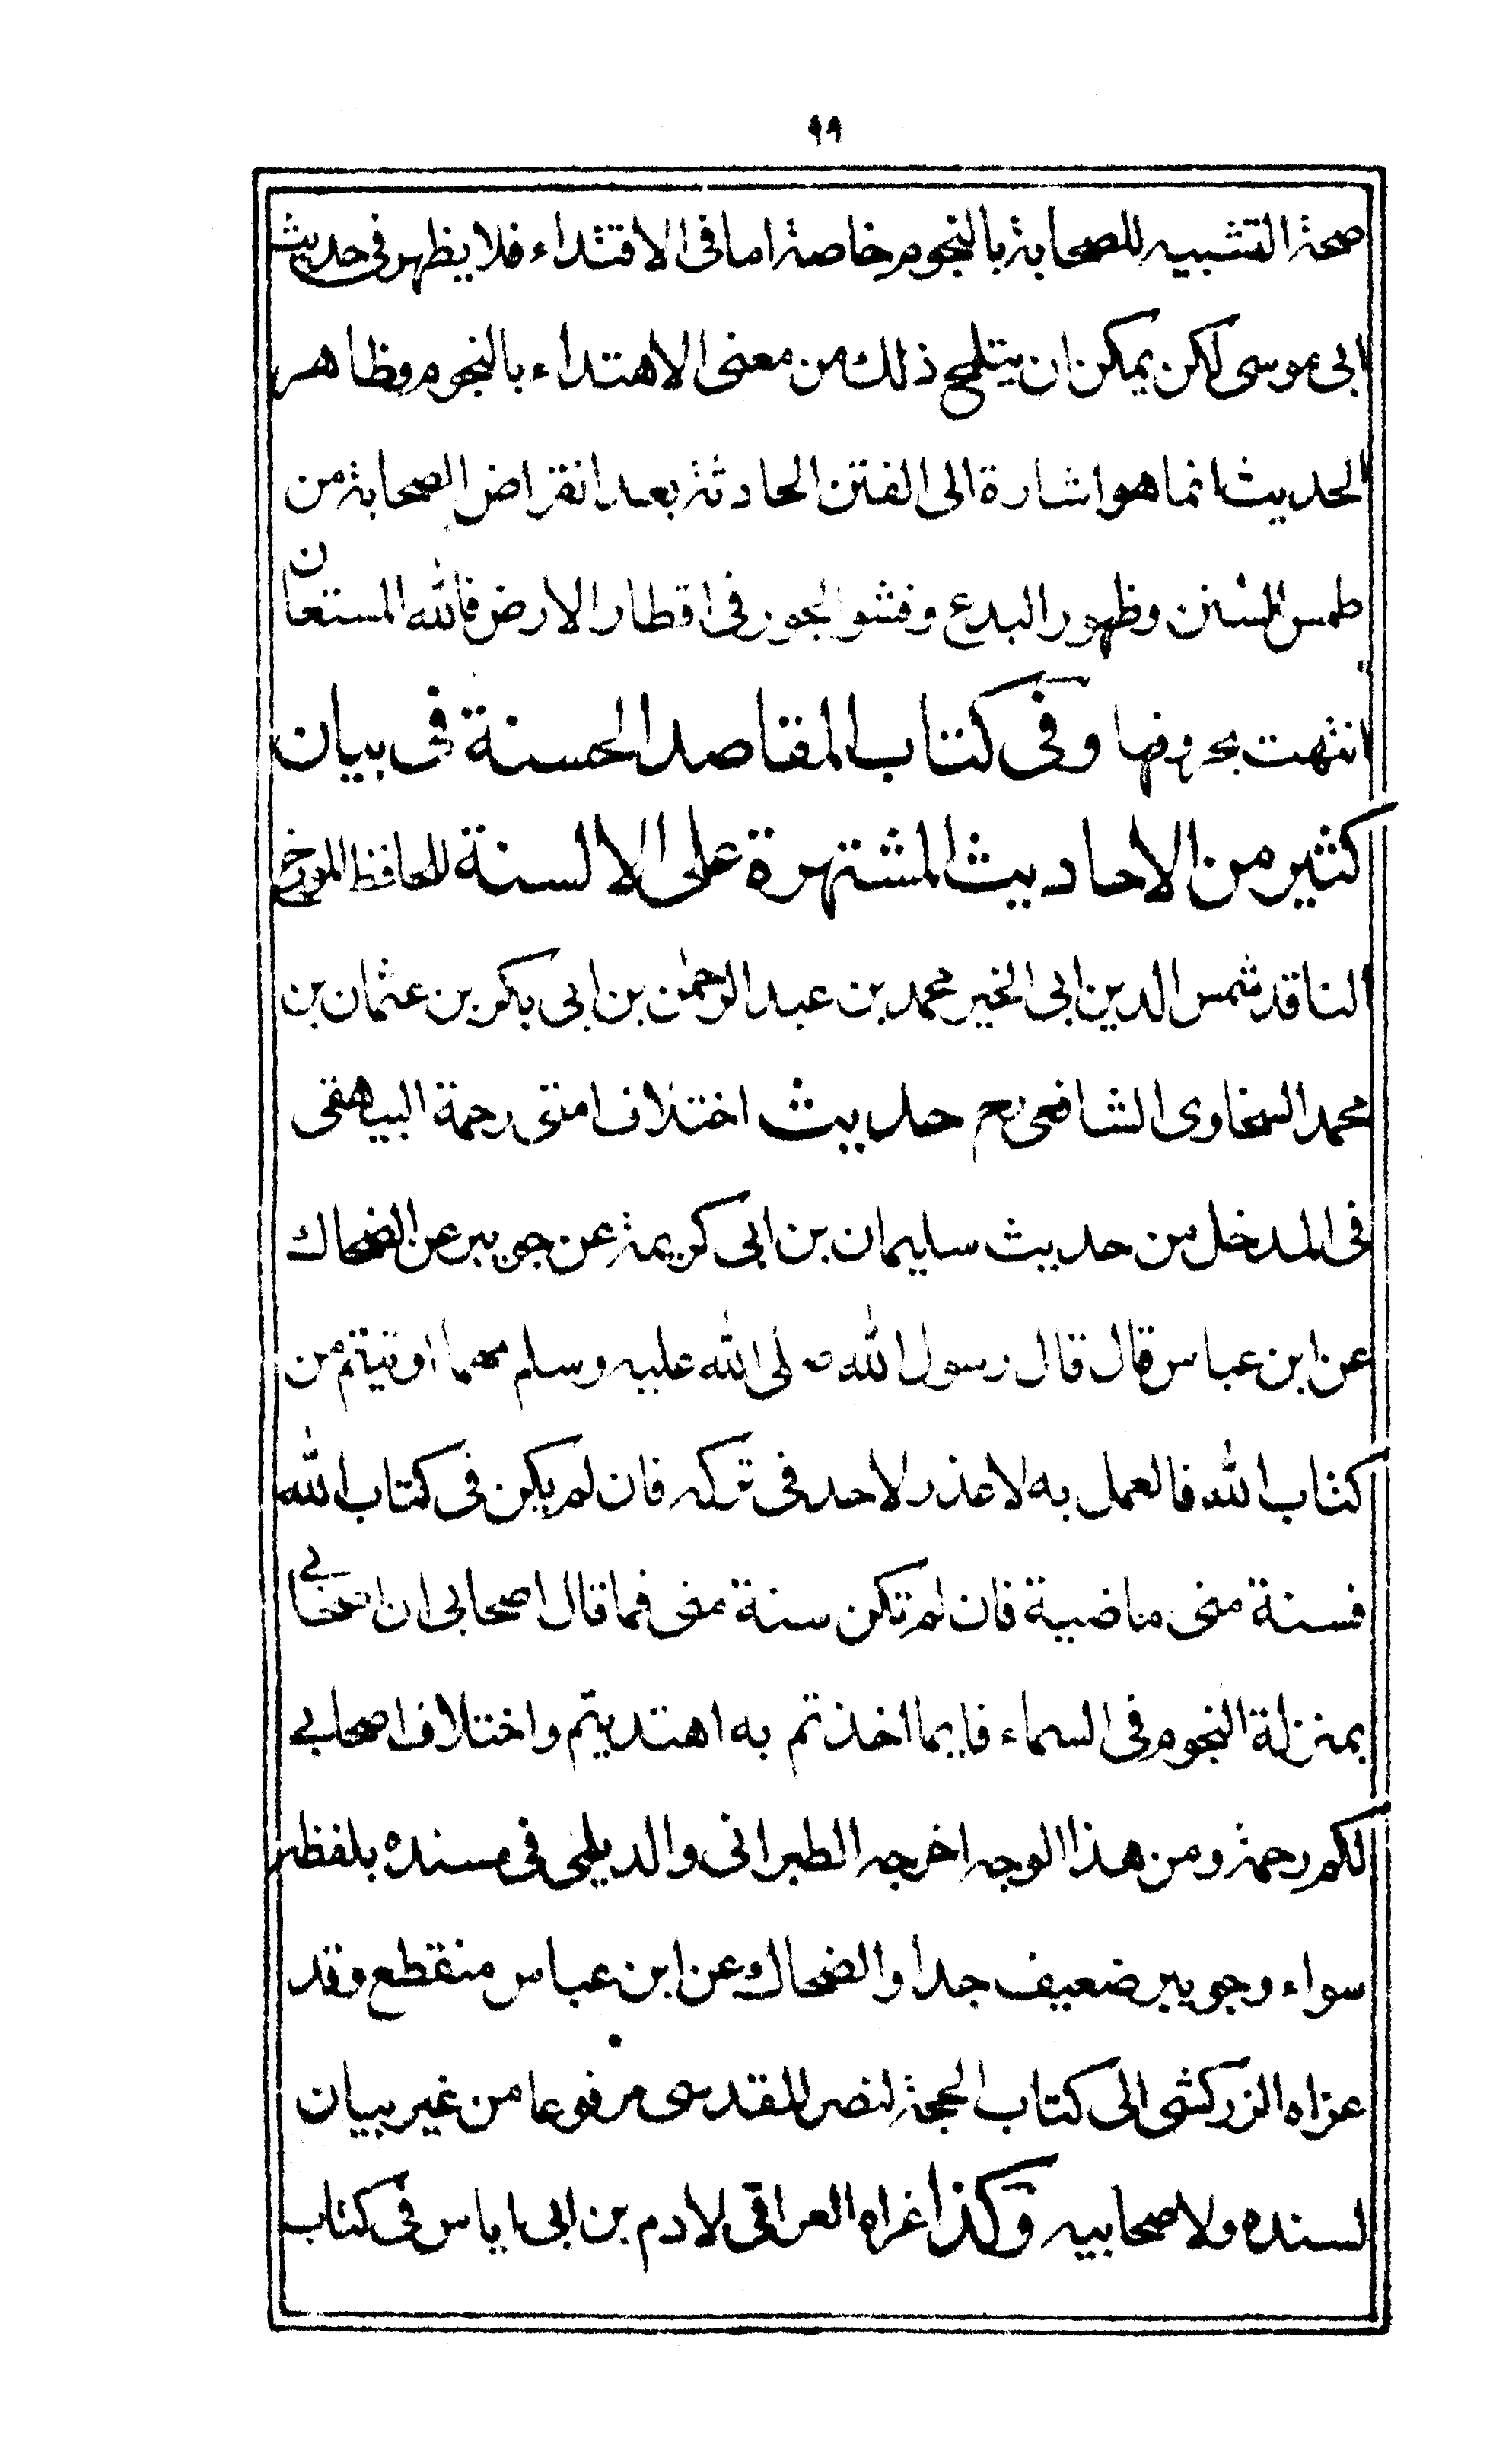 ٩٩
صحة التشبيه للصحابة بالنجوم خاصة اما فى الاقتداء فلا يظهر فى حديث
ابى موسى لكن يمكن ان يتلمح ذلك من معنى الاهتداء بالنجوم وظاهر
الحديث انما هو اشارة الى الفتن الحادثة بعد انقراض الصحابة من
طمس السنن وظهور البدع وفشو الجور فى اقطار الارض فالله المستعان
انتهت بحروفها وفى كتاب المقاصد الحسنة فى بيان
كثير من الاحاديث المشتهرة على الالسنة للحافظ المورخ
الناقد شمس الدين ابى الخير محمد بن عبد الرحمٰن بن ابى بكر بن عثمان بن
محمد السخاوى الشافعى رحم حديث اختلاف امتى رحمة البيهقى
فى المدخل من حديث سليمان بن ابى كريمة عن جويبر عن الضحاك
عن ابن عباس قال قال رسول الله صلى الله عليه وسلم مهما اوتيتم من
كتاب الله فالعمل به لا عذر لاحد فى تركه فان لم يكن فى كتاب الله
فسنة منى ماضية فان لم تكن سنة منى فما قال اصحابى ان اصحابى
بمنزلة النجوم فى السماء فايما اخذتم به اهتديتم واختلاف اصحابى
لكم رحمة ومن هذا الوجه اخرجه الطبرانى والديلمى فى مسنده بلفظه
سواء وجويبر ضعيف جدا والضحاك عن ابن عباس منقطع وقد
عزاه الزركشى الى كتاب الحجة لنصر المقدسى مرفوعا من غير بيان
لسنده ولا صحابيه وكذا عزاه العراقى لادم بن ابى اياس فى كتاب